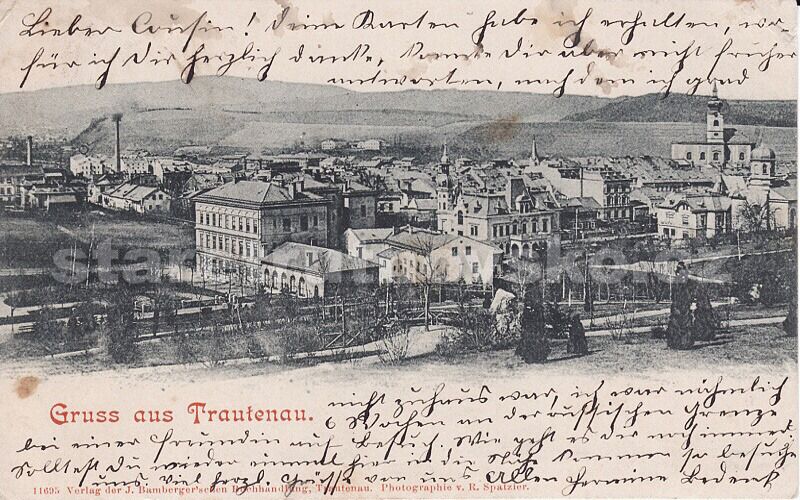 Lieber Cousin! Deine Karten habe ich erhalten, wo-
für ich Dir herzlich danke, konnte Dir aber nicht früher
antworten, nach dem ich grad
Gruss aus Trautenau.
nicht zuhaus war, ich war nähmlich
6 Wochen an der russischen Grenze
bei einer Freundin auf Besuch. Wie geht es dir noch immer
Solltest du wieder einmal hier in die kommen so besuche
uns viel herzl. Grüße von uns Allen Hermine
11695 Verlag der J. Bamberger'schen Buchhandlung, Trautenau. Photographie v. R. Spatzier.